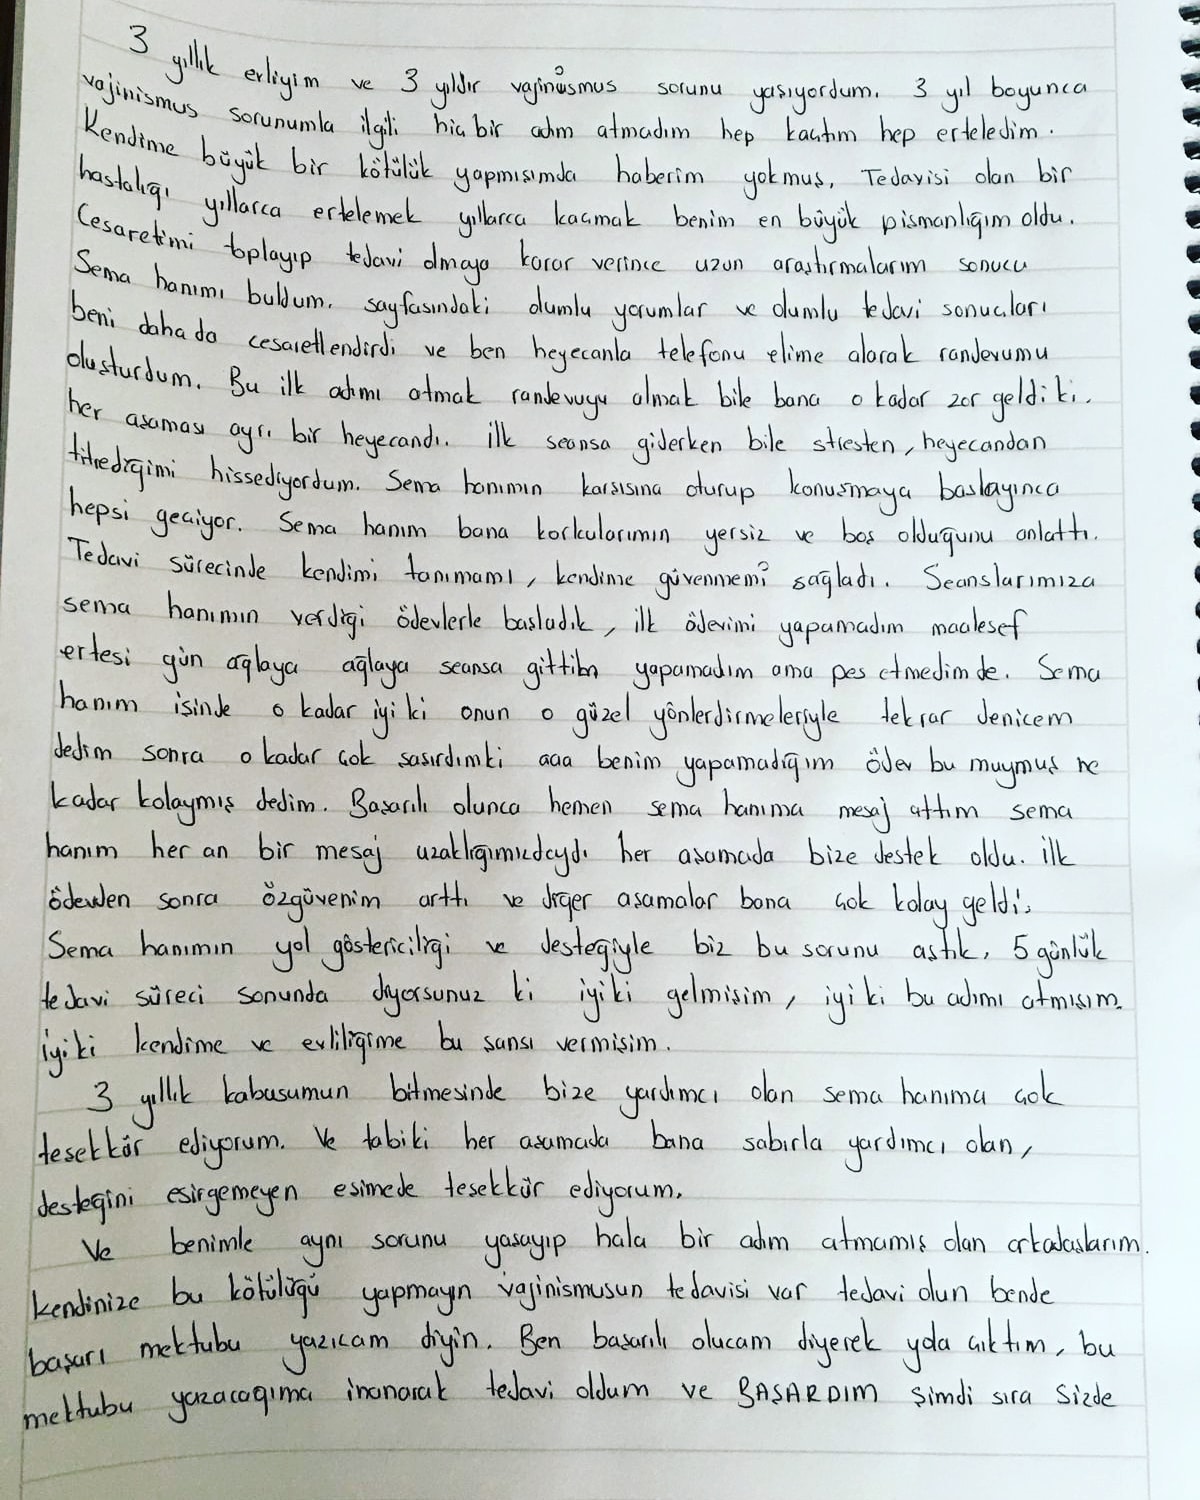 3 yıllık evliyim ve 3 yıldır vajinismus sorunu yaşıyordum. 3 yıl boyunca
vajinismus sorunumla ilgili hiç bir adım atmadım hep kaçtım hep erteledim.
Kendime büyük bir kötülük yapmışımda haberim yokmuş. Tedavisi olan bir
hastalığı yıllarca ertelemek yıllarca kaçmak benim en büyük pismanlığım oldu.
Cesaretimi toplayıp tedavi olmaya karar verince uzun araştırmalarım sonucu
Sema hanımı buldum. sayfasındaki olumlu yorumlar ve olumlu tedavi sonuçları
beni daha da cesaretlendirdi ve ben heyecanla telefonu elime alarak randevumu
oluşturdum. Bu ilk adımı atmak randevuyu almak bile bana o kadar zor geldi ki.
her aşaması ayrı bir heyecandı. ilk seansa giderken bile stresten, heyecandan
titrediğimi hissediyordum. Sema hanımın karşısına oturup konuşmaya başlayınca
hepsi geçiyor. Sema hanım bana korkularımın yersiz ve boş olduğunu anlattı.
Tedavi sürecinde kendimi tanımamı, kendime güvenmemi sağladı. Seanslarımıza
sema hanımın verdiği ödevlerle başladık, ilk ödevimi yapamadım maalesef
ertesi gün ağlaya ağlaya seansa gittim yapamadım ama pes etmedim de. Sema
hanım işinde o kadar iyi ki onun o güzel yönlerdirmeleriyle tekrar denicem
dedim sonra o kadar çok şaşırdımki aaa benim yapamadığım ödev bu muymuş ne
kadar kolaymış dedim. Başarılı olunca hemen sema hanıma mesaj attım sema
hanım her an bir mesaj uzaklığımızdaydı her aşamada bize destek oldu. ilk
ödevden sonra özgüvenim arttı ve diğer aşamalar bana çok kolay geldi.
Sema hanımın yol göstericiliği ve desteğiyle biz bu sorunu aştık. 5 günlük
tedavi süreci sonunda diyorsunuz ki iyiki gelmişim, iyi ki bu adımı atmışım.
iyi ki kendime ve evliliğime bu şansı vermişim.
3 yıllık kabusumun bitmesinde bize yardımcı olan sema hanıma çok
teşekkür ediyorum. Ve tabiki her aşamada bana sabırla yardımcı olan,
desteğini esirgemeyen eşimede teşekkür ediyorum.
Ve benimle aynı sorunu yaşayıp hala bir adım atmamış olan arkadaşlarım.
kendinize bu kötülüğü yapmayın vajinismusun tedavisi var tedavi olun bende
başarı mektubu yazıcam diyin. Ben başarılı olucam diyerek yola çıktım, bu
mektubu yazacağıma inanarak tedavi oldum ve BAŞARDIM Şimdi sıra Sizde